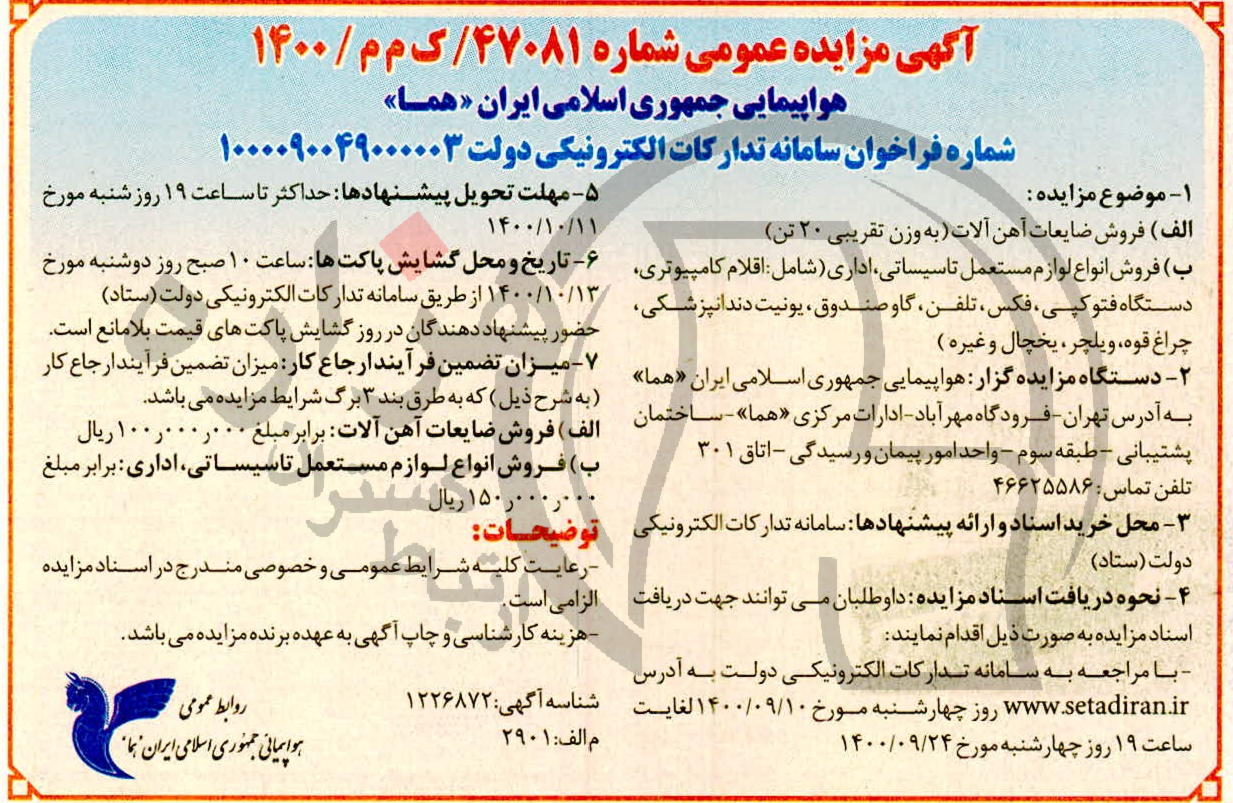 آگهی مزایده عمومی شماره ۴۷۰۸۱/ ک م م / ۱۴۰۰
هواپیمایی جمهوری اسلامی ایران «همـا»
شماره فراخوان سامانه تدارکات الکترونیکی دولت ۱۰۰۰۰۹۰۰۴۹۰۰۰۰۰۳
۱- موضوع مزایده :
الف) فروش ضایعات آهن آلات (به وزن تقریبی ۲۰ تن)
ب) فروش انواع لوازم مستعمل تاسیساتی، اداری (شامل: اقلام کامپیوتری،
دستگاه فتوکپی، فکس، تلفن، گاوصندوق، یونیت دندانپزشکی،
چراغ قوه، ویلچر، یخچال و غیره )
۲- دستگاه مزایده گزار: هواپیمایی جمهوری اسلامی ایران «هما»
به آدرس تهران-فرودگاه مهرآباد-ادارات مرکزی «هما»-ساختمان
پشتیبانی - طبقه سوم -واحد امور پیمان و رسیدگی -اتاق ۳۰۱
تلفن تماس: ۴۶۶۲۵۵۸۶
۳- محل خرید اسناد و ارائه پیشنهادها: سامانه تدارکات الکترونیکی
دولت (ستاد)
۴- نحوه دریافت اسناد مزایده: داوطلبان می توانند جهت دریافت
اسناد مزایده به صورت ذیل اقدام نمایند:
-با مراجعه به سامانه تدارکات الکترونیکی دولت به آدرس
www.setadiran.ir روز چهارشنبه مورخ ۱۴۰۰/۰۹/۱۰ لغایت
ساعت ۱۹ روز چهارشنبه مورخ ۱۴۰۰/۰۹/۲۴
۵- مهلت تحویل پیشنهادها: حداکثر تا ساعت ۱۹ روز شنبه مورخ
۱۴۰۰/۱۰/۱۱
۶- تاریخ و محل گشایش پاکت ها: ساعت ۱۰ صبح روز دوشنبه مورخ
۱۴۰۰/۱۰/۱۳ از طریق سامانه تدارکات الکترونیکی دولت (ستاد)
حضور پیشنهاد دهندگان در روز گشایش پاکت های قیمت بلامانع است.
۷- میزان تضمین فرآیند ارجاع کار: میزان تضمین فرآیند ارجاع کار
(به شرح ذیل) که به طرق بند ۳ برگ شرایط مزایده می باشد.
الف) فروش ضایعات آهن آلات: برابر مبلغ ۱۰۰ر۰۰۰ر۰۰۰ ریال
ب) فروش انواع لوازم مستعمل تاسیساتی، اداری: برابر مبلغ
۱۵۰ر۰۰۰ر۰۰۰ ریال
توضیحات:
-رعایت کلیه شرایط عمومی و خصوصی مندرج در اسناد مزایده
الزامی است.
-هزینه کارشناسی و چاپ آگهی به عهده برنده مزایده می باشد.
شناسه آگهی: ۱۲۲۶۸۷۲
م الف: ۲۹۰۱
روابط عمومی
هواپیمائی جمهوری اسلامی ایران "هما"